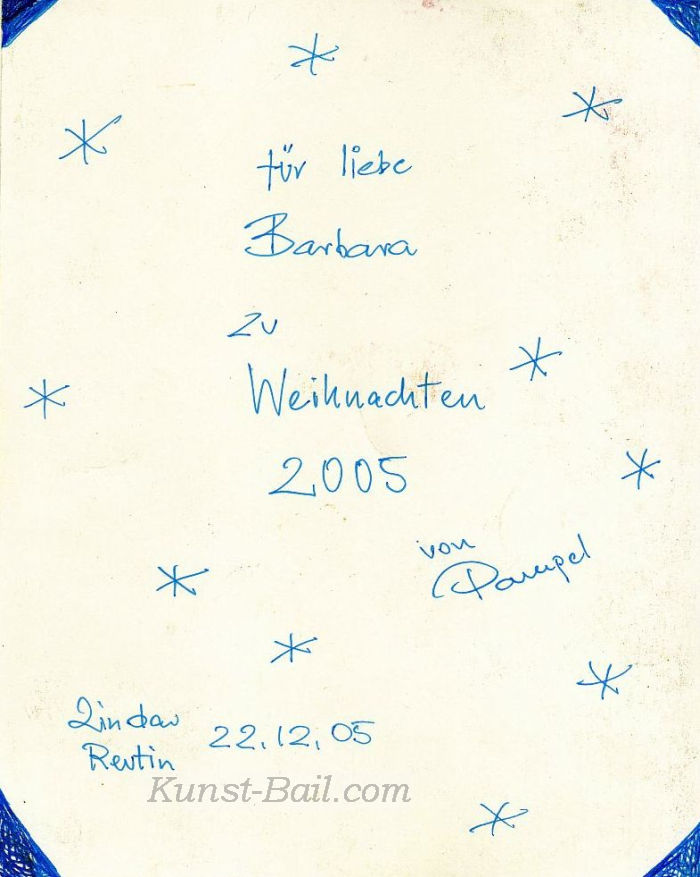 für liebe
Barbara
zu
Weihnachten
2005
von
Pampel
Lindau
Reutin
22.12.05
Kunst-Bail.com